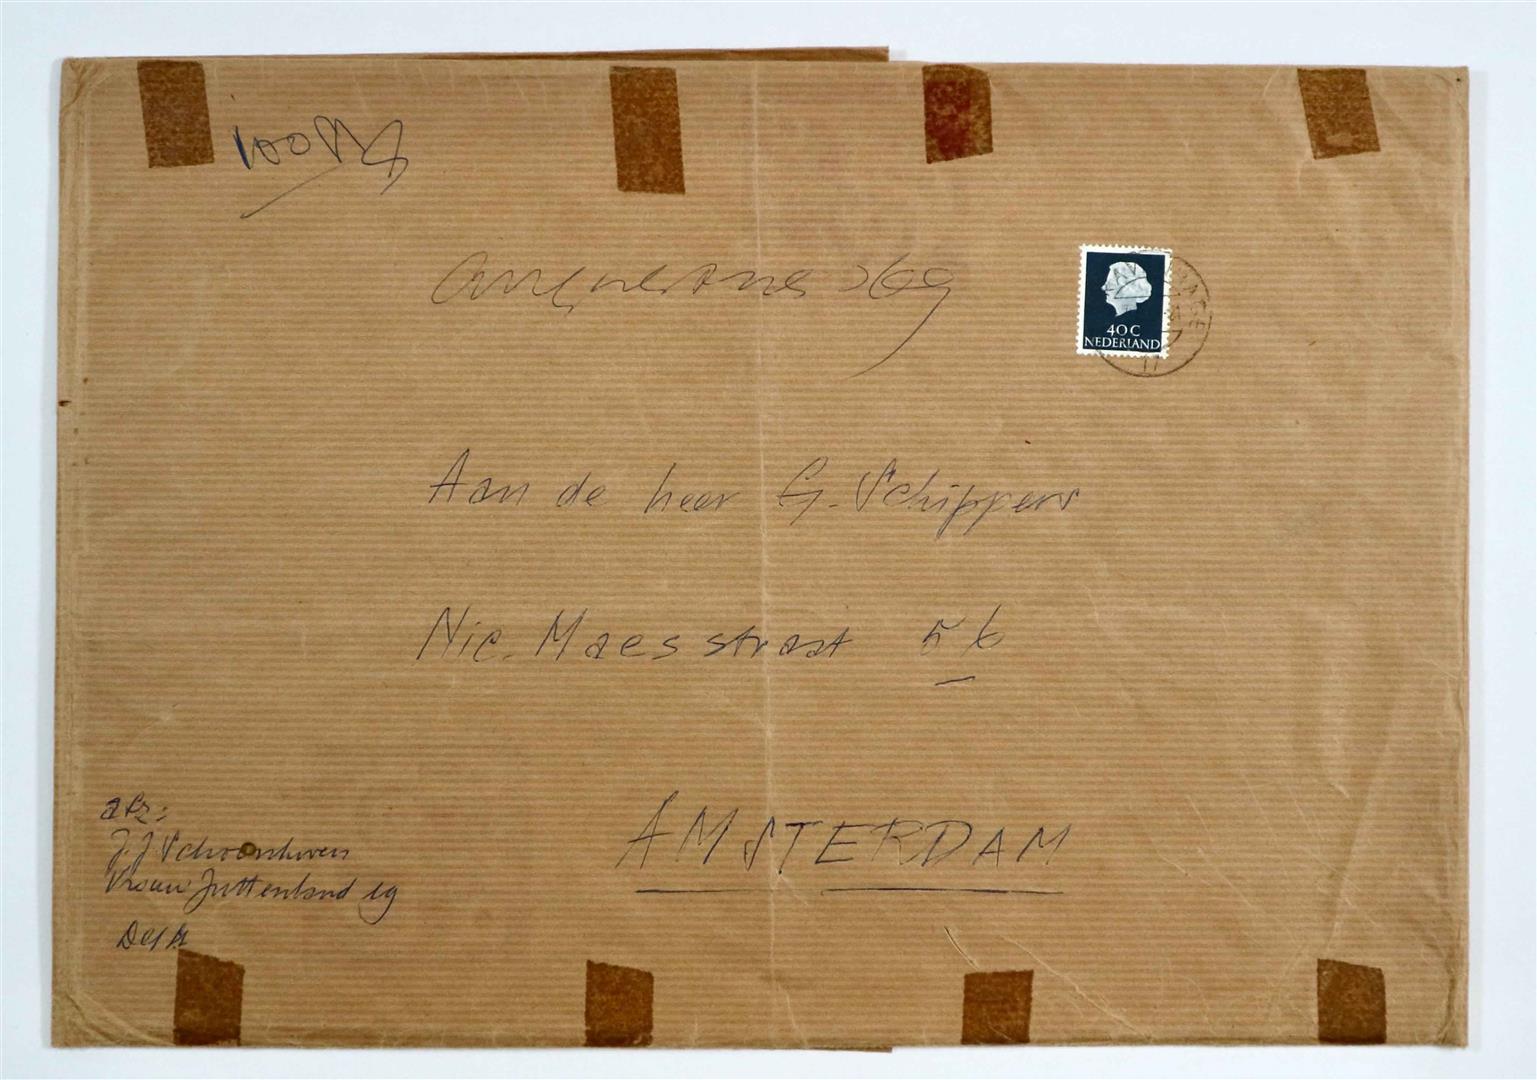 40 C
NEDERLAND
Aan de heer G. Schippers
Nic. Maesstraat 56
AMSTERDAM
afz:
J.J Schoonhoven
Vrouw Juttenland 19
Delft